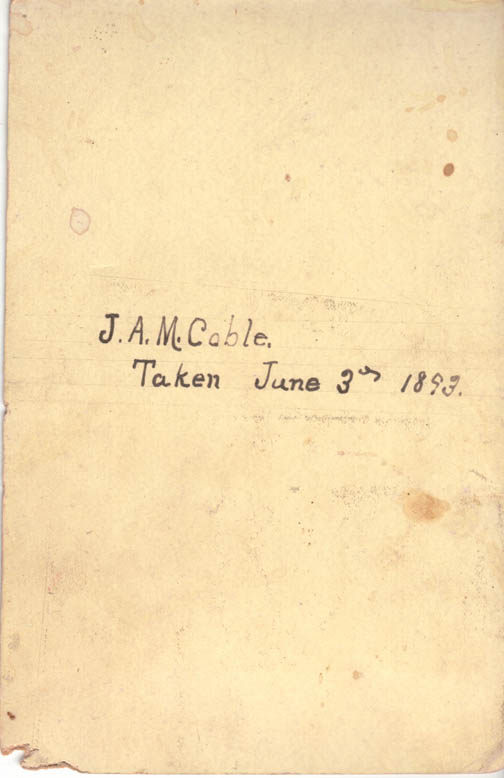 J. A. M. Coble.
Taken June 3th 1893.